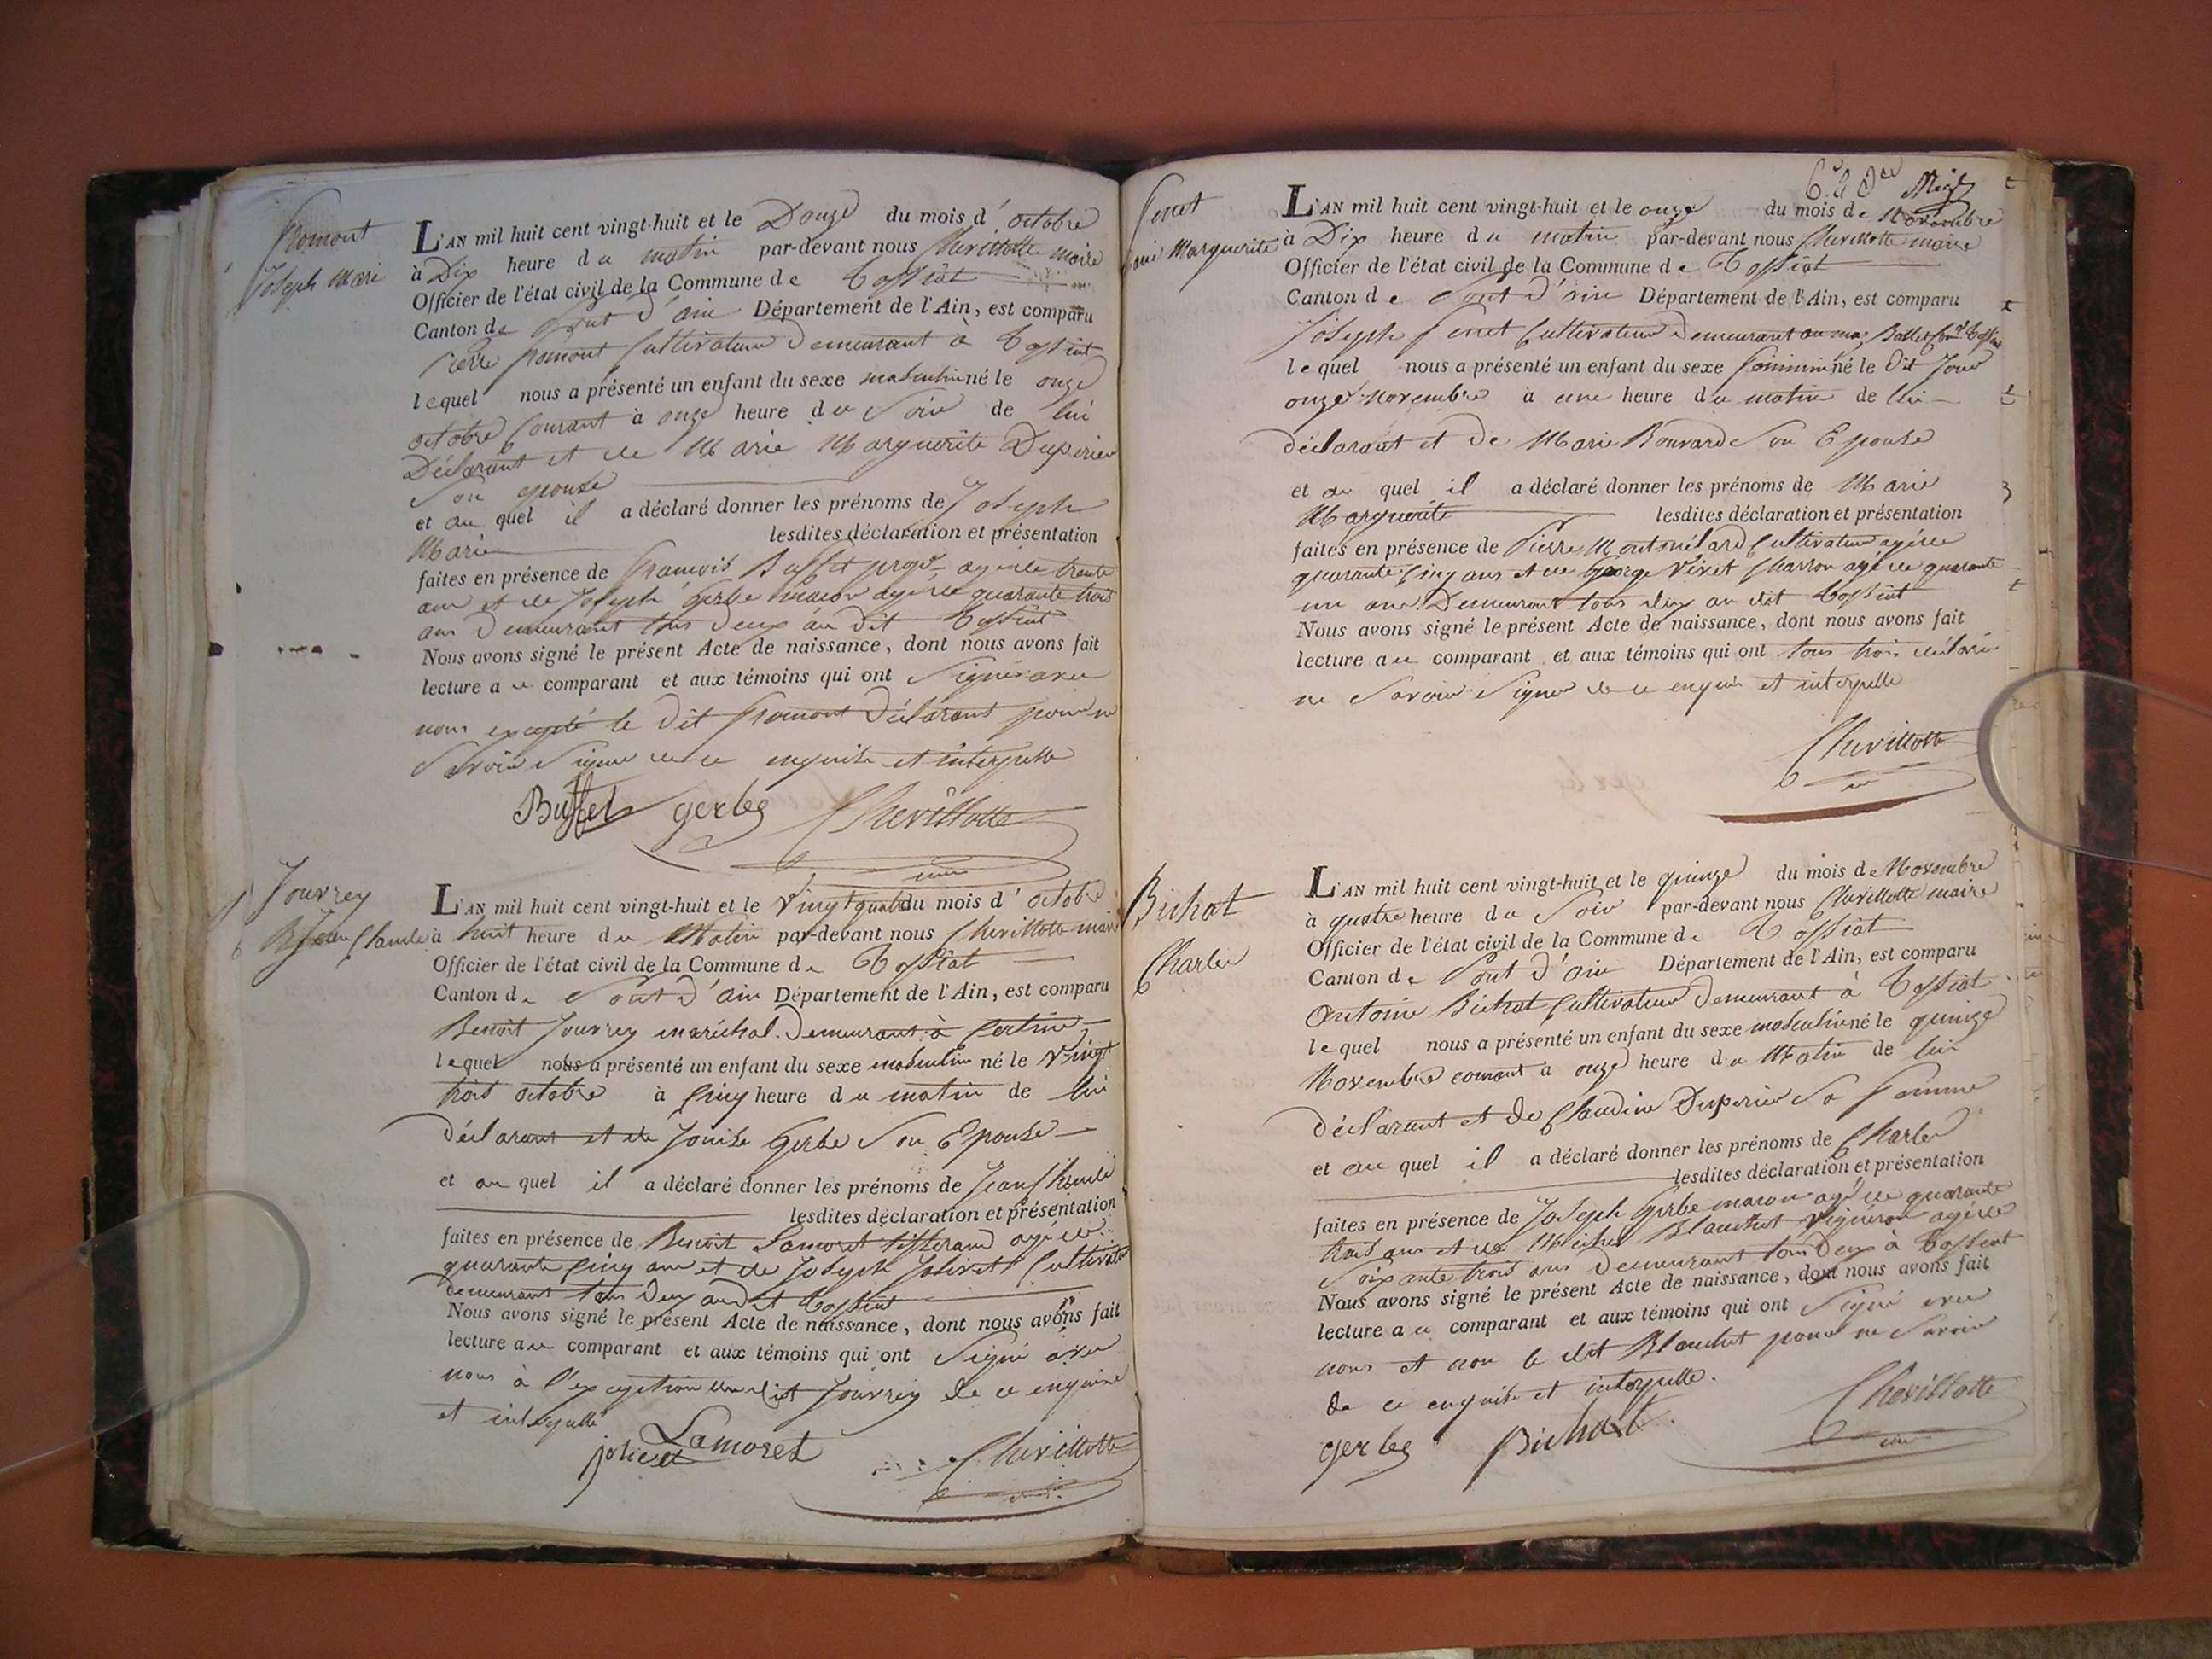 Fromont
Joseph Marie
L'AN mil huit cent vingt-huit et le Douze du mois d'octobre
à Dix heure du matin par-devant nous Chevillotte maire
Officier de l'état civil de la Commune de Tossiat
Canton de Pont d'ain Département de l'Ain, est comparu
Pierre Fromont Cultivateur Demeurant à Tossiat
lequel nous a présenté un enfant du sexe masculin né le onze
octobre Courant à onze heure du Soir de lui
Déclarant et de Marie Marguerite Duperier
Son epouse
et au quel il a déclaré donner les prénoms de Joseph
Marie lesdites déclaration et présentation
faites en présence de François Buffet propre agé de trente
ans et de Joseph Gerbe macon agé de quarante trois
ans Demeurant tous Deux au Dit Tossiat
Nous avons signé le présent Acte de naissance, dont nous avons fait
lecture au comparant et aux témoins qui ont Signé avec
nous excepté le Dit Fromont Déclarant pour ne
Savoir Signer de ce enquis et interpellé
Buffet gerbe Chevillotte
Jouvrey
Jean Claude
L'AN mil huit cent vingt-huit et le Vingt quatre du mois d'octobre
à huit heure du Matin par-devant nous Chevillotte maire
Officier de l'état civil de la Commune de Tossiat
Canton de Pont d'Ain Département de l'Ain, est comparu
Benoit Jouvrey maréchal Demeurant à Certine
lequel nous a présenté un enfant du sexe masculin né le Vingt
trois octobre à Cinq heure du matin de lui
déclarant et de Louise Gerbe Son Epouse
et au quel il a déclaré donner les prénoms de Jean Claude
lesdites déclaration et présentation
faites en présence de Benoit Lamoret tisserand agé de
quarante Cinq ans et de Joseph Jolivet Cultivateur
demeurant tous Deux au dit Tossiat
Nous avons signé le présent Acte de naissance, dont nous avons fait
lecture au comparant et aux témoins qui ont Signé avec
nous à l'exception du dit Jouvrey de ce enquise
et interpellé
Lamoret
jolivet Chevillotte
Genet
Marie Marguerite
L'AN mil huit cent vingt-huit et le onze du mois de Novembre
à Dix heure du matin par-devant nous Chevillotte maire
Officier de l'état civil de la Commune de Tossiat
Canton de Pont d'ain Département de l'Ain, est comparu
Joseph Genet Cultivateur Demeurant au mas Tossiat
lequel nous a présenté un enfant du sexe feminin né le Dit Jour
onze Novembre à une heure du matin de lui
déclarant et de Marie Bouvard Son Epouse
et au quel il a déclaré donner les prénoms de Marie
Marguerite lesdites déclaration et présentation
faites en présence de Pierre Montmélard Cultivateur agé de
quarante Cinq ans et de George Vivet Charron agé de quarante
un ans Demeurant tous deux au dit Tossiat
Nous avons signé le présent Acte de naissance, dont nous avons fait
lecture au comparant et aux témoins qui ont tous trois déclaré
ne Savoir Signer de ce enquis et interpellé
Chevillotte
Bichat
Charles
L'AN mil huit cent vingt-huit et le quinze du mois de Novembre
à quatre heure du Soir par-devant nous Chevillotte maire
Officier de l'état civil de la Commune de Tossiat
Canton de Pont d'ain Département de l'Ain, est comparu
Antoine Bichat Cultivateur Demeurant à Tossiat
lequel nous a présenté un enfant du sexe masculin né le quinze
Novembre courant à onze heure du Matin de lui
déclarant et de Claudine Duperier Sa femme
et au quel il a déclaré donner les prénoms de Charles
lesdites déclaration et présentation
faites en présence de Joseph Gerbe macon agé de quarante
trois ans et de Michel Blanchet Vigneron agé de
Soixante trois ans Demeurant tous Deux à Tossiat
Nous avons signé le présent Acte de naissance, dont nous avons fait
lecture au comparant et aux témoins qui ont Signé avec
nous et non le dit Blanchet pour ne Savoir
de ce enquis et interpellé.
gerbe Bichat Chevillotte